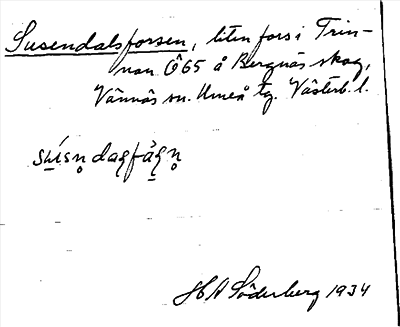 Susendalsforsen, liten fors i Trin-
nan Ö65 å Bergnäs skog,
Vännäs sn. Umeå tg. Västerb. l.
dagfågn
H A Söderberg 1934